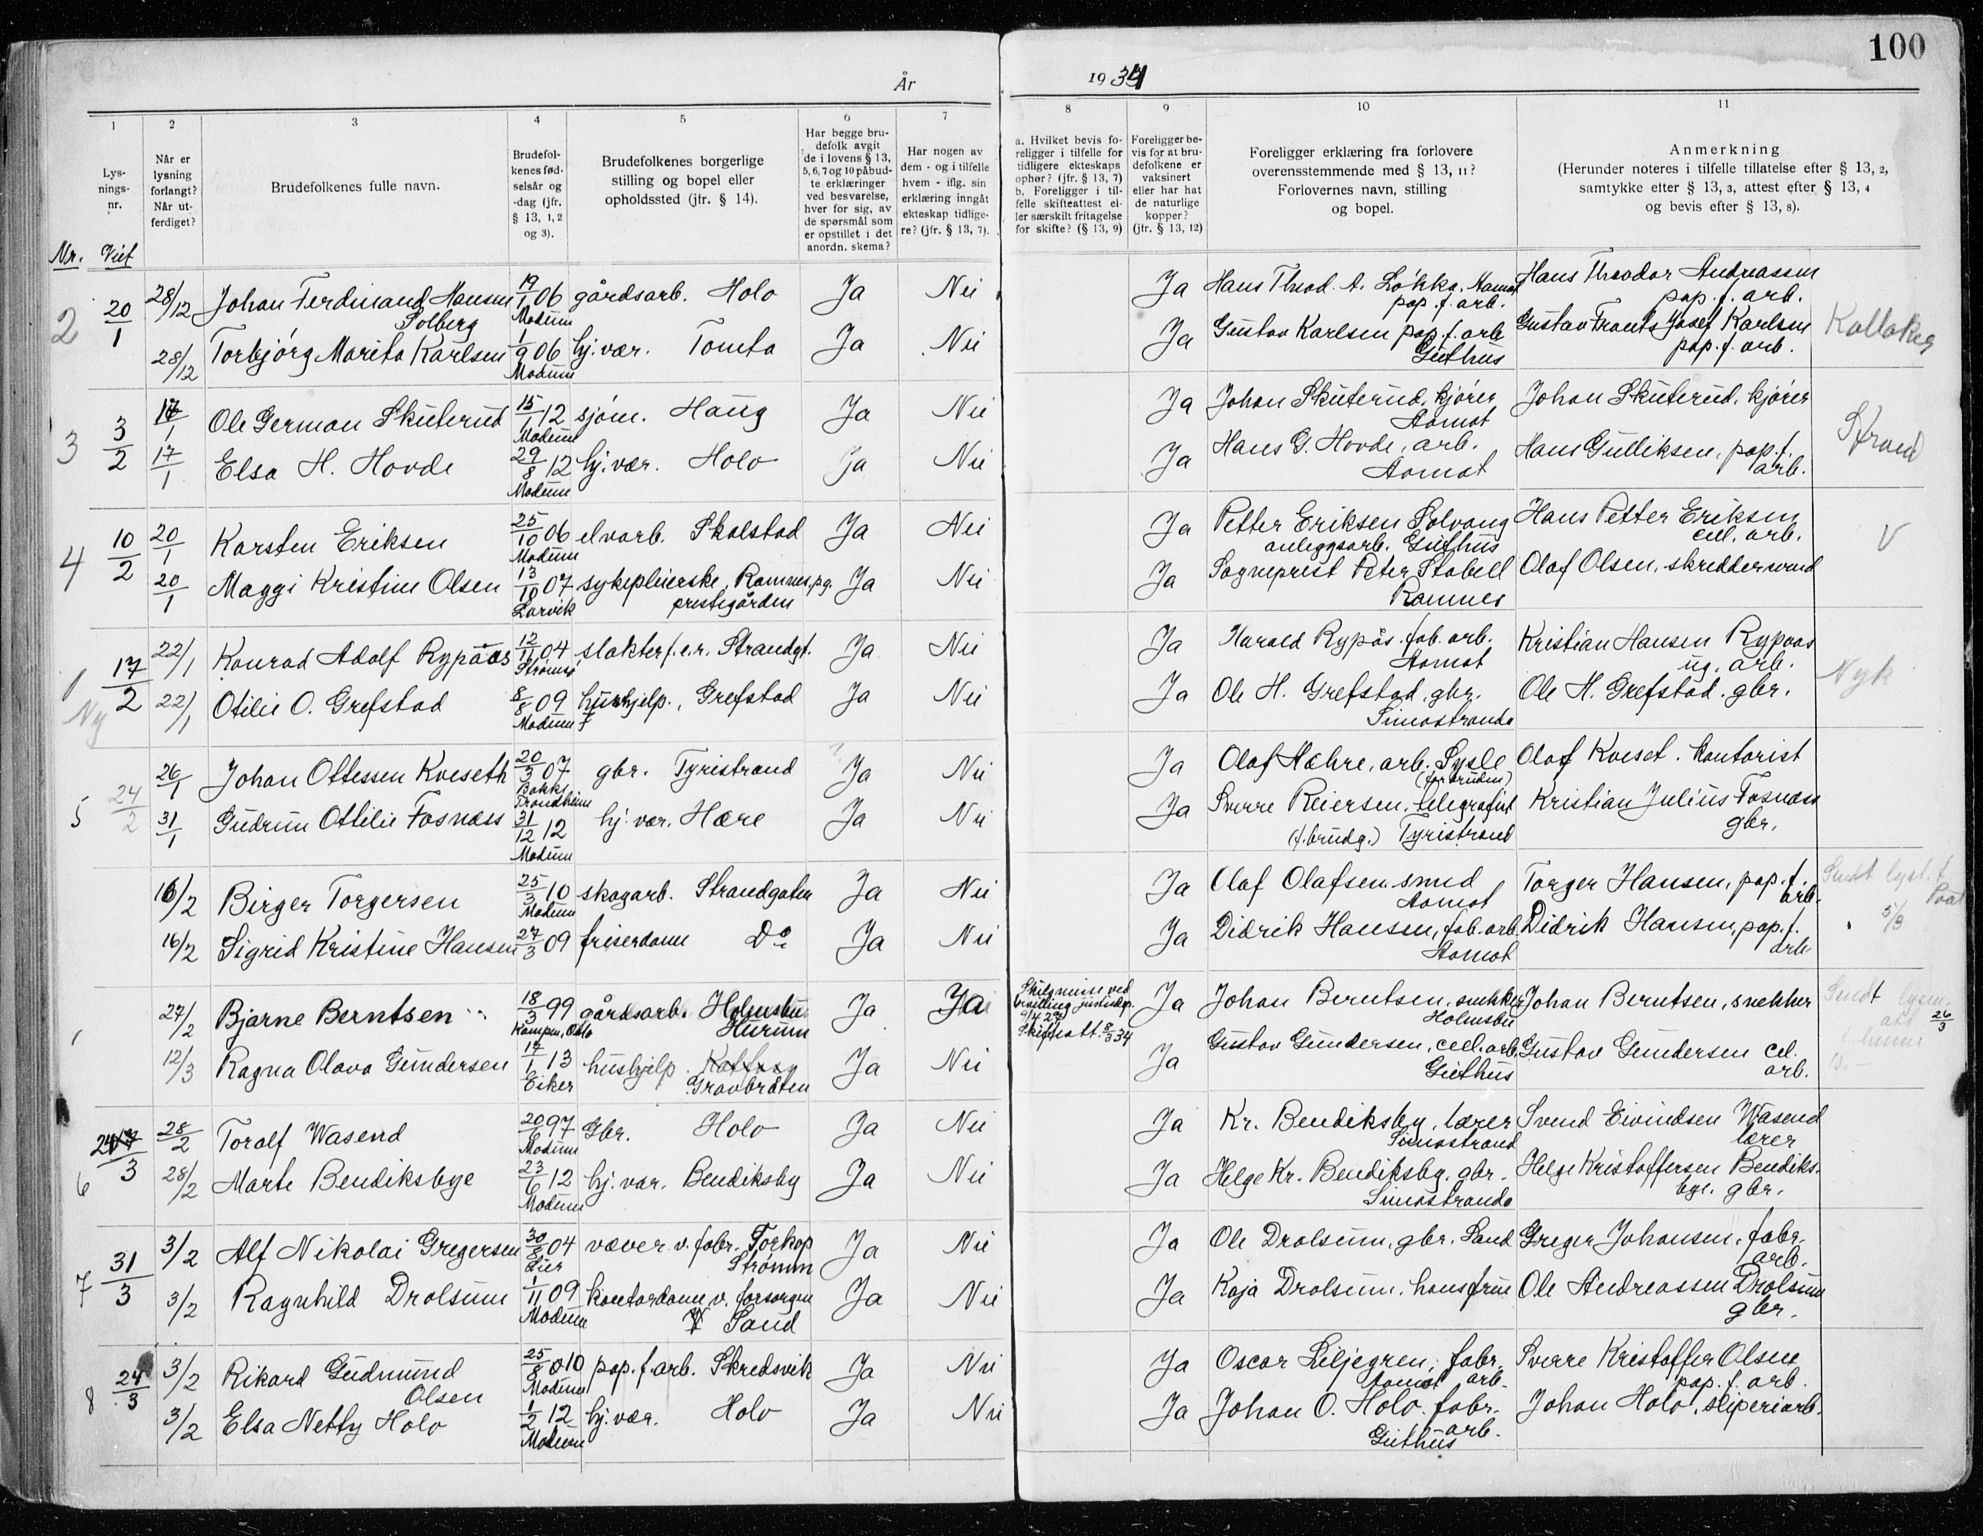 100
År 1934
1 2 3 4 5 6 7 8 9 10 11
Lys-
nings-
nr.
Når er
lysning
forlangt?
Når ut-
ferdiget?
Brudefolkenes fulle navn.
Brudefol-
kenes fød-
selsår og
-dag (jfr.
§ 13, 1, 2
og 3).
Brudefolkenes borgerlige
stilling og bopel eller
opholdssted (jfr. § 14).
Har begge bru-
defolk avgit
de i lovens § 13,
5, 6, 7 og 10 påbud-
te erklæringer
ved besvarelse,
hver for sig, av
de spørsmål som
er opstillet i det
anordn. skema?
Har nogen av
dem - og i tilfelle
hvem - iflg. sin
erklæring inngått
ekteskap tidlige-
re? (jfr. § 13, 7).
a. Hvilket bevis fo-
religger i tilfelle for
tidligere ekteskaps
ophør? (jfr. § 13, 7)
b. Foreligger i til-
felle skifteattest el-
ler særskilt fritagelse
for skifte? (§ 13, 9)
Foreligger be-
vis for at bru-
defolkene er
vaksinert
eller har hat
de naturlige
kopper?
(jfr. § 13, 12)
Foreligger erklæring fra forlovere
overensstemmende med § 13, 11?
Forlovernes navn, stilling
og bopel.
Anmerkning
(Herunder noteres i tilfelle tillatelse efter § 13, 2,
samtykke efter § 13, 3, attest efter § 13, 4
og bevis efter § 13, 8).
Nr. Viet
2 20/1 28/12 Johan Ferdinand Hansen 19/1 06 gårdsarb. Holo Ja Nei Ja Hans Theod. A. Løkka, Aamot Hans Theodor Andreassen
Solberg Modum pap. f. arb. pap. f. arb.
28/12 Torbjörg Marita Karlsen 1/9 06 hj. vær. Tomta Ja Nei Ja Gustav Karlsen pap. f. arb Gustav Frants Josef Karlsen
Modum Geithus pap. f. arb.
3 3/2 17/1 Ole German Skuterud 15/1 12 sjöm. Haug Ja Nei Ja Johan Skuterud, kjører Johan Skuterud, kjører
Modum Aamot
17/1 Elsa H. Hovde 29/8 12 hj. vær. Holo Ja Nei Ja Hans G. Hovde, arb. Hans Gulliksen, pap. f.
Modum Aamot arb.
4 10/2 20/1 Karsten Eriksen 25/10 06 elvarb. Skalstad Ja Nei Ja Petter Eriksen Solvang Hans Petter Eriksen V
Modum anleggsarb. Geithus cell. arb.
20/1 Maggi Kristine Olsen 13/10 07 sykepleierske, Ramnes pg. Ja Nei Ja Sogneprest Peter Stabell Olaf Olsen, skreddersvend
Larvik prestegården Ramnes
1 Ny 17/2 22/1 Konrad Adolf Rypaas 12/11 04 slakter f.e.r. Strandgt. Ja Nei Ja Harald Rypås fab. arb. Kristian Hansen Rypaas Nyk
Strømsö Aamot ug. arb.
22/1 Otilie O. Grefstad 8/8 09 hushjelp., Grefstad Ja Nei Ja Ole H. Grefstad, gbr. Ole H. Grefstad, gbr.
Modum Simostranda
5 24/2 26/1 Johan Ottessen Kveseth 20/3 07 gbr. Tyristrand Ja Nei Ja Olaf Hæhre, arb. Sysle Olaf Kveset. kontorist
Bakke Trondheim (for bruden)
31/1 Gudrun Ottilie Fosnæss 31/12 12 hj. vær. Hære Ja Nei Ja Sverre Reiersen, telegrafist Kristian Julius Fosnæss
Modum (f. brudg.) Tyristrand gbr.
16/2 Birger Torgersen 25/3 10 skogarb. Strandgaten Ja Nei Ja Olaf Olafsen smed Torger Hansen, pap. f. Sendt lyst. t
Modum Aamot arb.
16/2 Sigrid Kristine Hansen 27/3 09 friserdame Do Ja Nei Ja Didrik Hansen, fab. arb. Didrik Hansen, pap. f. 5/3
Aamot arb
27/2 Bjarne Berntsen 18/3 99 gårdsarb. Holmsbu Ja Ja Ja Johan Berntsen, snekker Johan Berntsen, snekker Sendt lysn.
Kampen, Oslo Hurum Skifteatt. 8/3 34 Holmsbu 26/3
12/3 Ragna Olava Gundersen 17/1 13 hushjelp Gravbråten Ja Nei Ja Gustav Gundersen, cell. arb. Gustav Gundersen cel.
Eiker Geithus arb.
6 24/3 28/2 Toralf Wasend 20/6 97 Gbr. Holo Ja Nei Ja Kr. Bendiksby, lærer Svend Eivindsen Wasend
Modum Simostrand lærer
28/2 Marte Bendiksbye 23/6 12 hj. vær. Bendiksby Ja Nei Ja Helge Kr. Bendiksby, gbr. Helge Kristoffersen Bendiks-
Modum Simostranda bye. gbr.
7 31/3 3/2 Alf Nikolai Gregersen 30/8 04 væver v. fabr. Torkop Ja Nei Ja Ole Drolsum, gbr. Sand Greger Johansen, fabr.
Lier Strømm arb.
3/2 Ragnhild Drolsum 1/11 09 kontordame v. forsorgen Ja Nei Ja Kaja Drolsum, hansfrue Ole Andreassen Drolsum
Modum V Sand gbr.
8 24/3 3/2 Rikard Gudmund 25/8 010 pap. f arb. Skredsvik Ja Nei Ja Oscar Liljegren, fabr. Sverre Kristoffer Olsen
Olsen Modum Aamot arb. pap. f. arb.
3/2 Elsa Netty Holo 1/2 12 hj. vær. Holo Ja Nei Ja Johan O. Holo. fabr. Johan Holo, sliperiarb.
Modum arb. Geithus